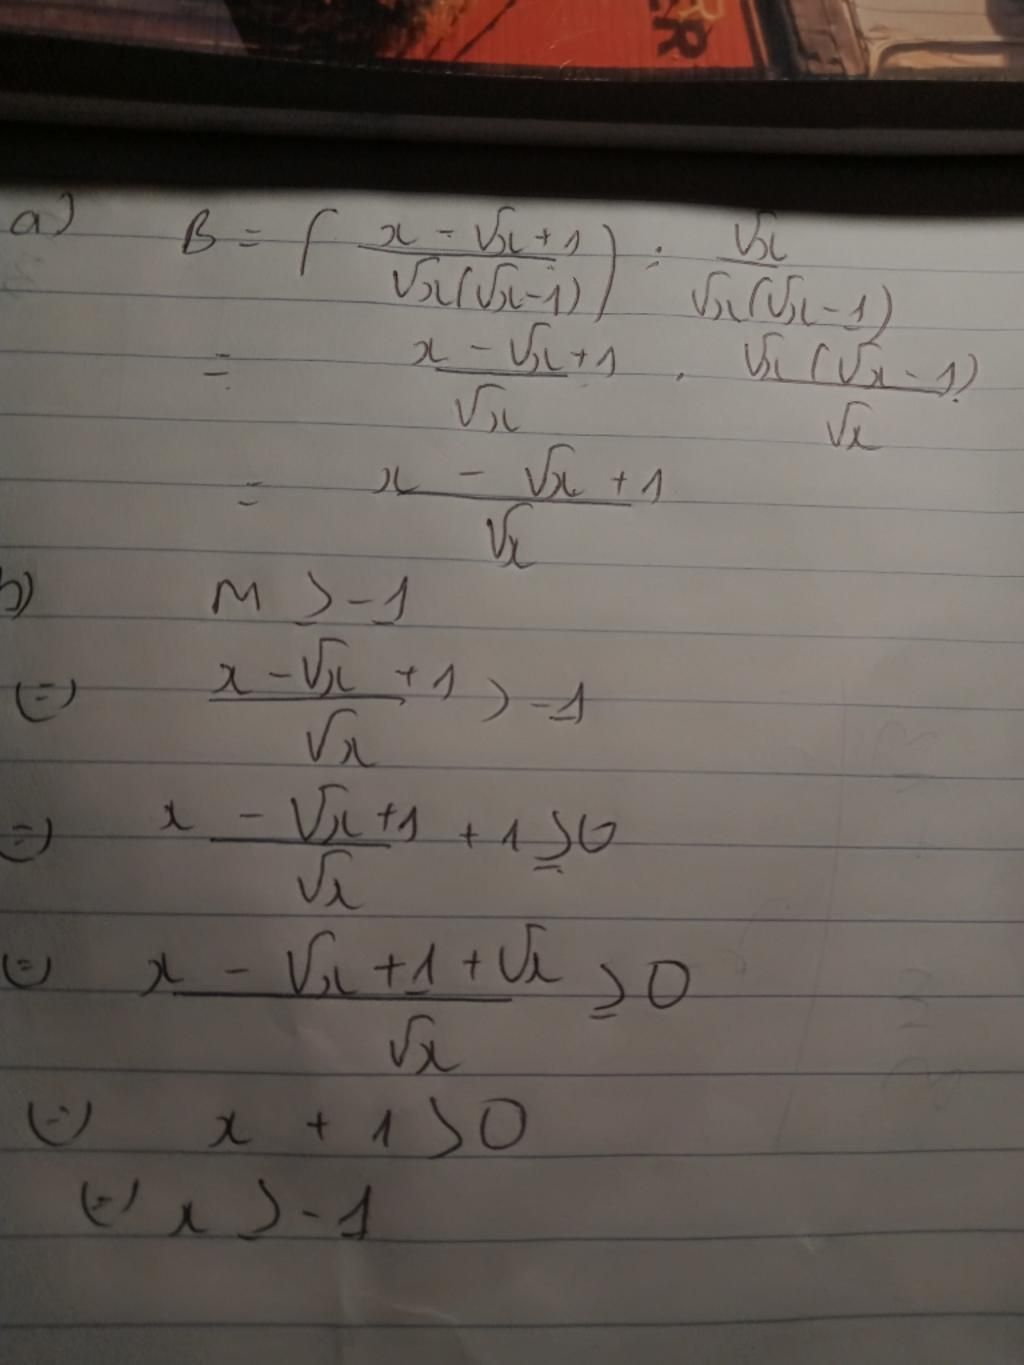 RR
ER
a) B = ( (x - √x + 1) / (√x(√x - 1)) ) : √x / (√x(√x - 1))
= (x - √x + 1) / √x . √x(√x - 1) / √x
= (x - √x + 1) / √x
b) M > -1
(=) (x - √x + 1) / √x > -1
(=) (x - √x + 1) / √x + 1 ≥ 0
(=) (x - √x + 1 + √x) / √x ≥ 0
(=) x + 1 > 0
(=) x > -1